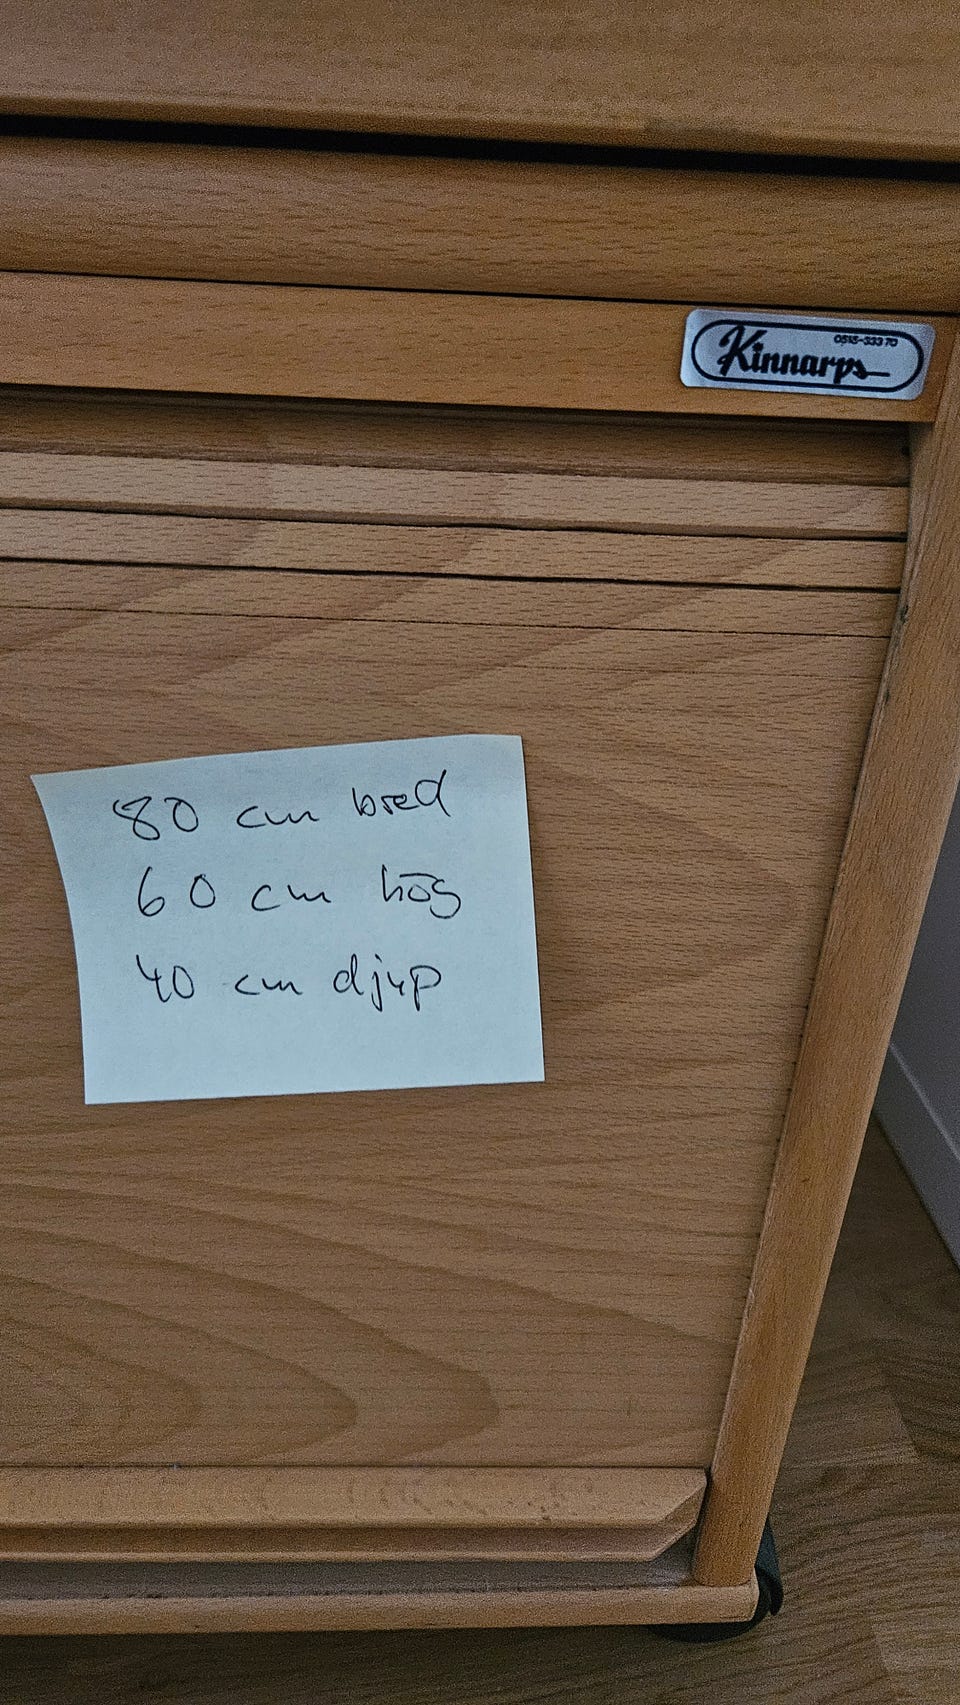 0515-333 70
Kinnarps
80 cm bred
60 cm hög
40 cm djup